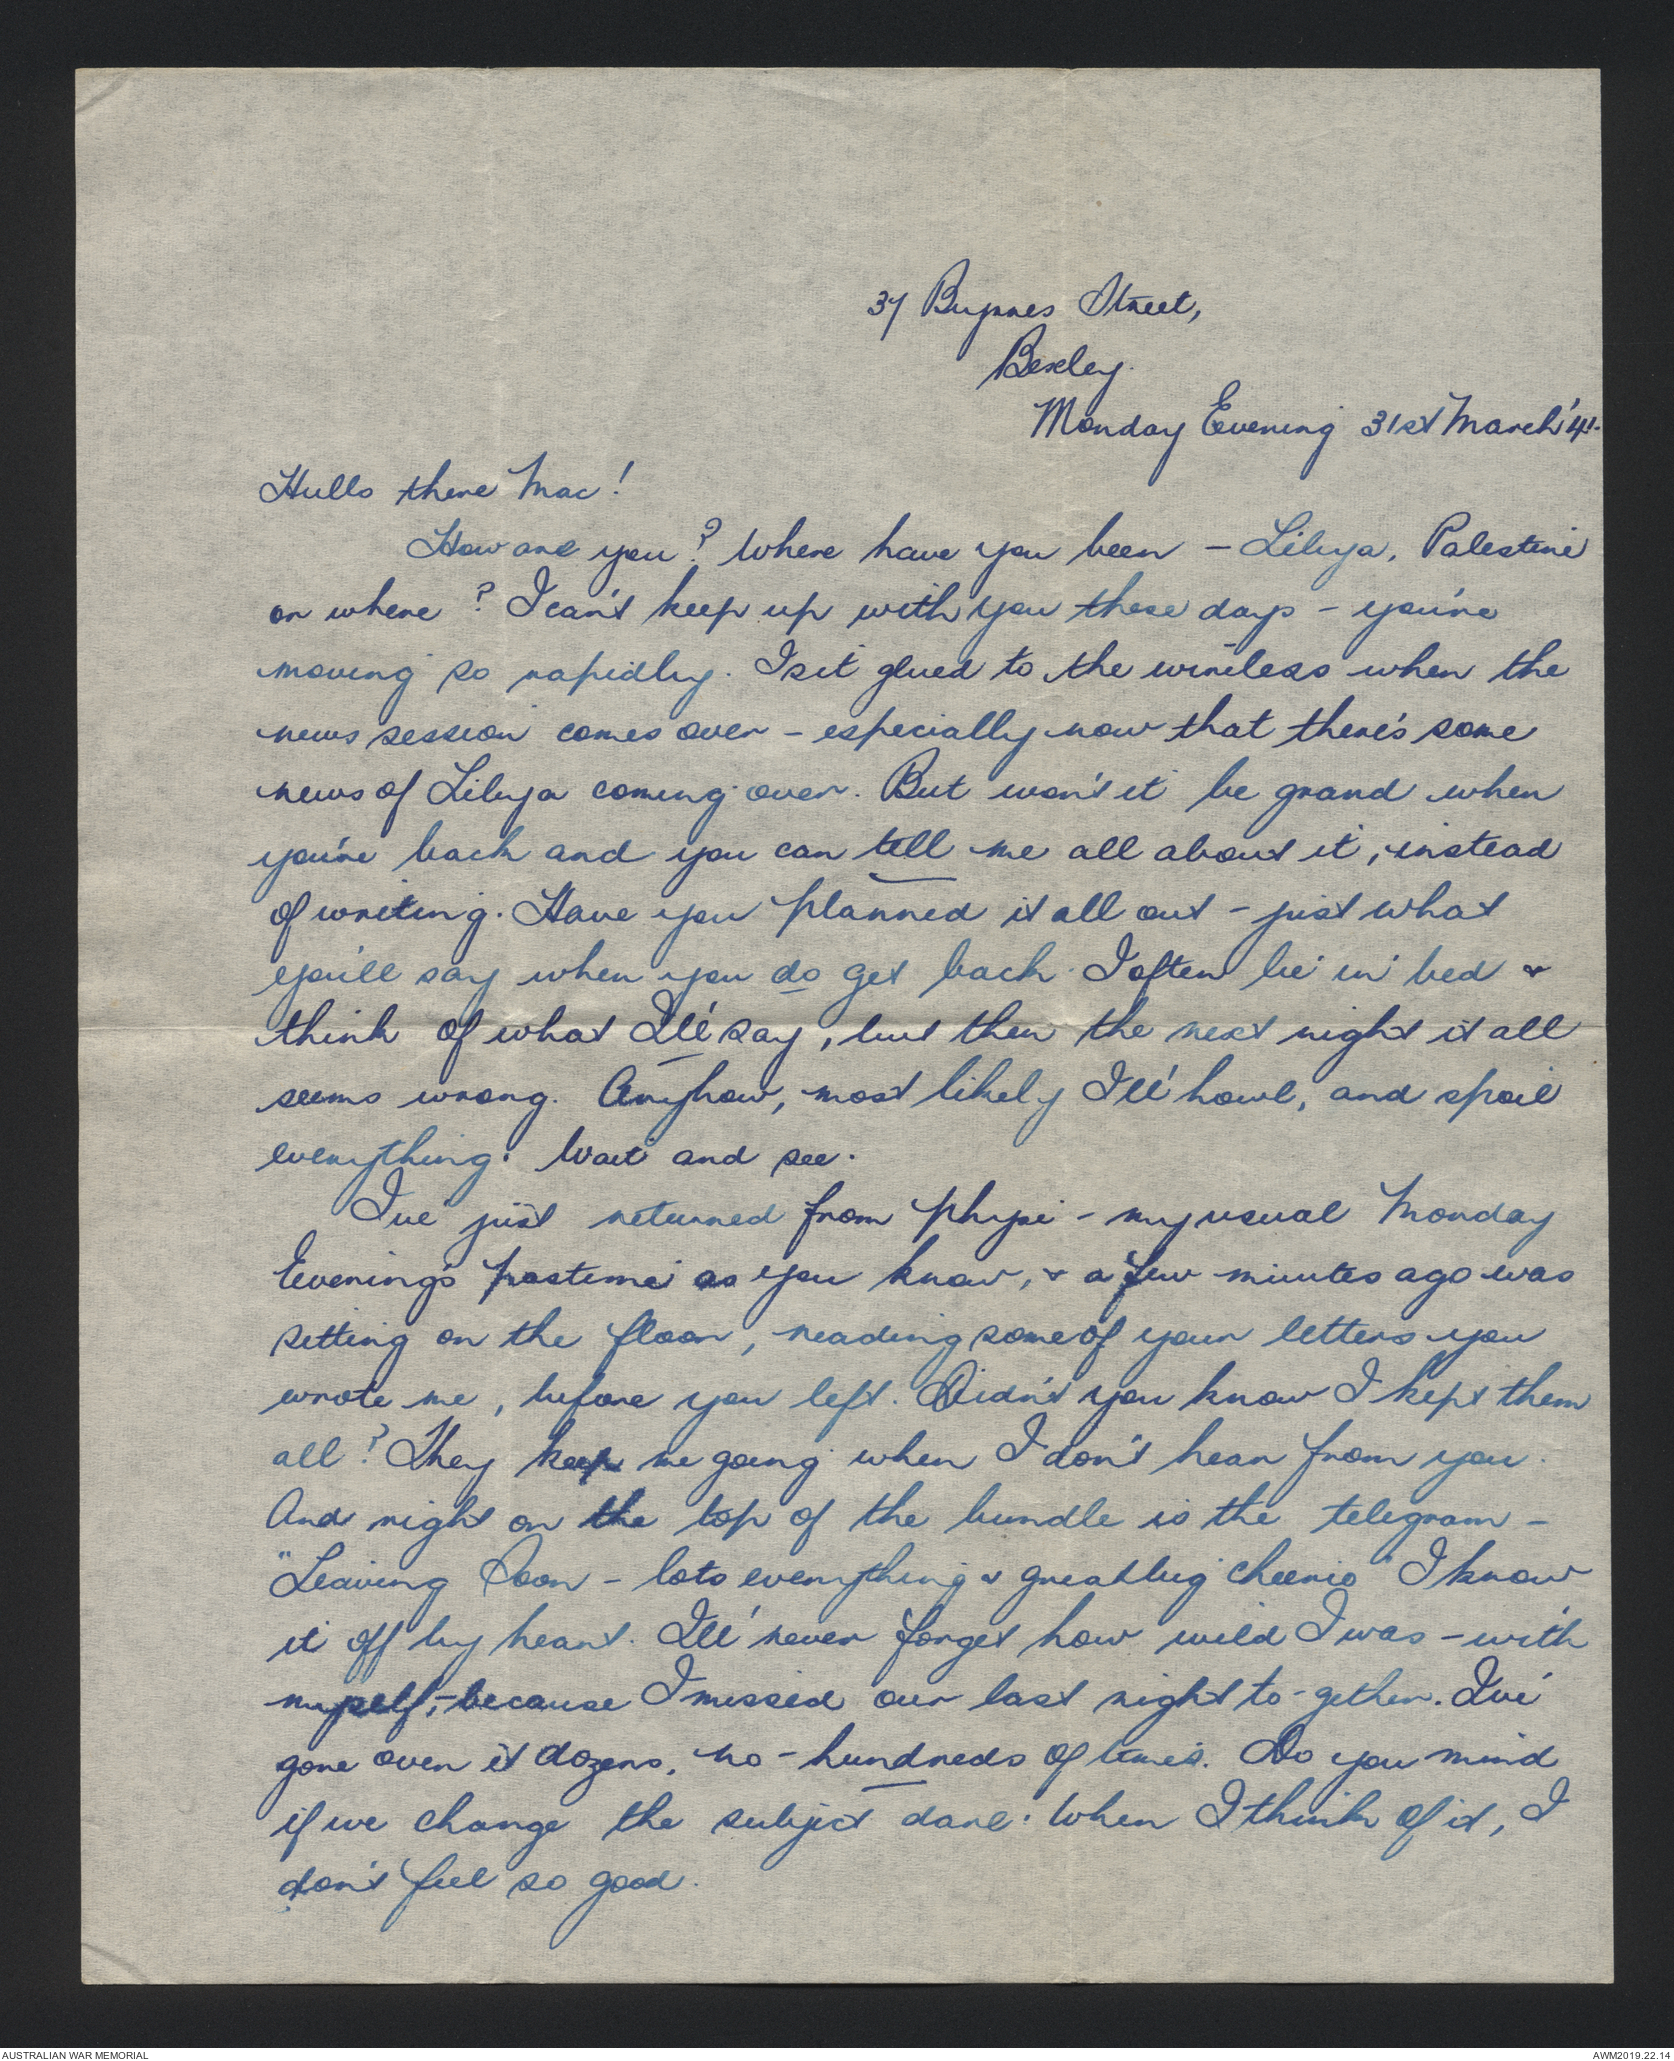 37 Byrnes Street,
Bexley.
Monday Evening 31st March '41.
Hullo there Mac!
How are you? Where have you been - Libya, Palestine
or where? I can't keep up with you these days - you're
moving so rapidly. I sit glued to the wireless when the
news session comes over - especially now that there's some
news of Libya coming over. But won't it be grand when
you're back and you can tell me all about it, instead
of writing. Have you planned it all out - just what
you'll say when you do get back. I often lie in bed &
think of what I'll say, but then the next night it all
seems wrong. Anyhow, most likely I'll howl, and spoil
everything. Wait and see.
I've just returned from Physi - my usual Monday
Evening's pastime as you know, & a few minutes ago was
sitting on the floor, reading some of your letters you
wrote me, before you left. Didn't you know I kept them
all? They keep me going when I don't hear from you.
And right on the top of the bundle is the telegram -
"Leaving Soon - lots everything & great big cheerio" I know
it off by heart. I'll never forget how wild I was - with
myself, - because I missed our last night to-gether. I've
gone over it dozens, no - hundreds of times. Do you mind
if we change the subject darl. When I think of it, I
don't feel so good.
AUSTRALIAN WAR MEMORIAL
AWM2019.22.14